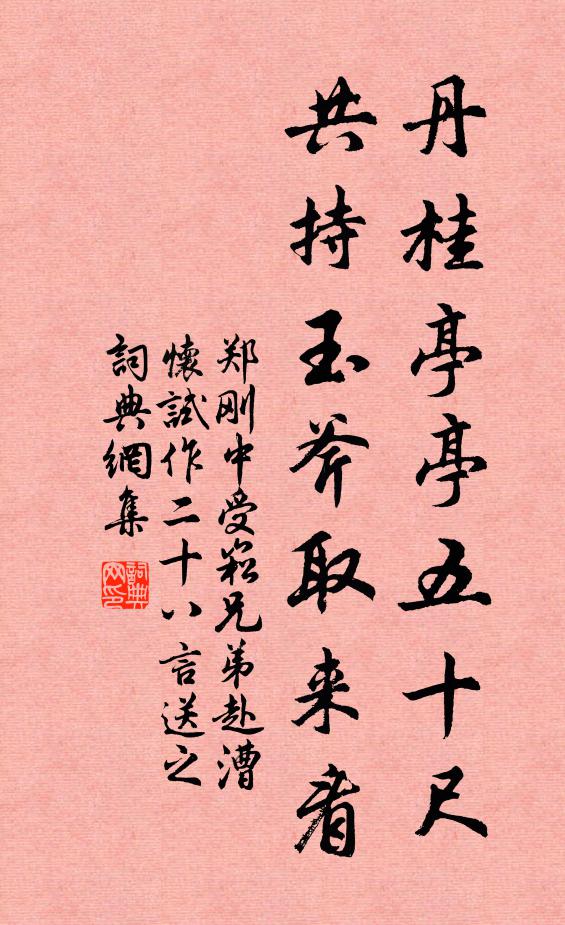 丹桂亭亭五十尺
共持玉斧取来看
郑刚中受崧兄弟赴漕
懷試作二十八言送之
詞典網集
詞典
网印